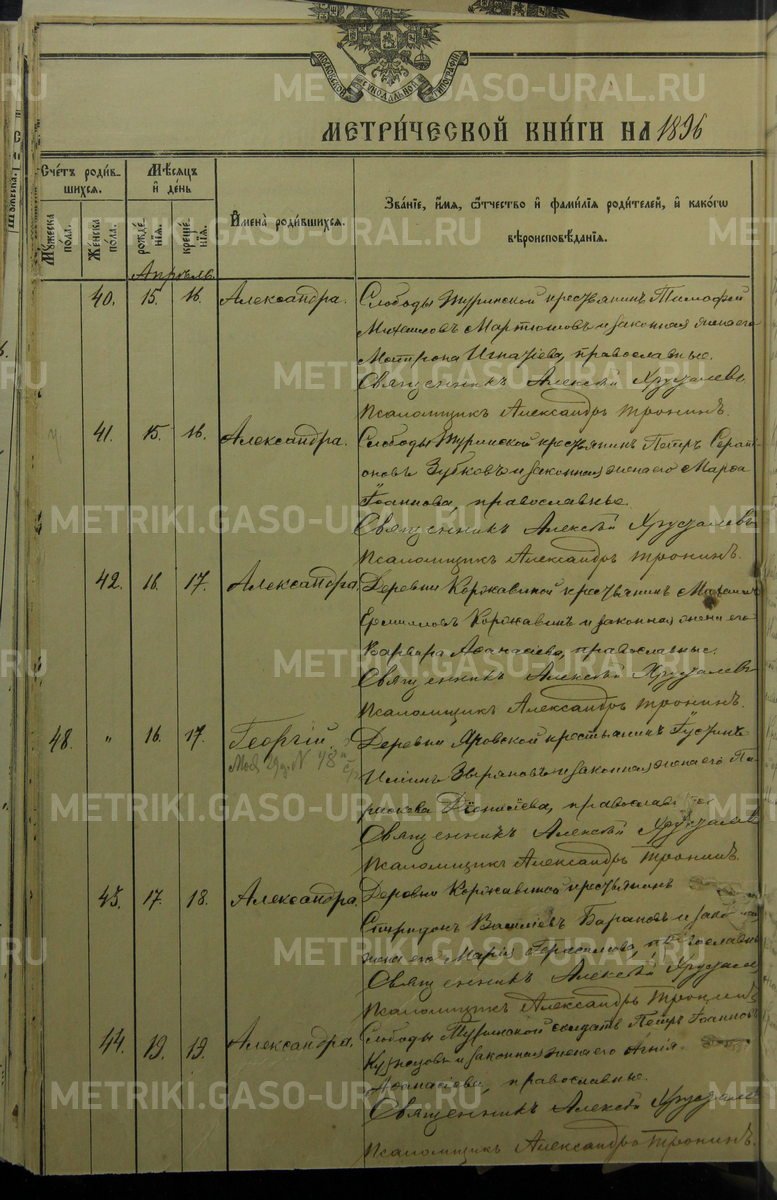 МОСКОВСКОЙ СѴНОДАЛЬНОЙ ТИПОГРАФІИ
МЕТРИ́ЧЕСКОЙ КНИ́ГИ НА 1896
Сче́тъ роди́в-
шихся.
Мѣ́сяцъ
и҆ де́нь
И҆мена̀ роди́вшихся.
Зва́нїе, и҆́мя, ѻ҆́тчество и҆ фами́лїя роди́телей, и҆ како́гѡ
вѣроисповѣ́данїя.
Мꙋ́жеска по́ла.
Же́нска по́ла.
рожде́нїя.
креще́нїя.
Апрѣль.
40. 15. 16. Александра. Слободы Туринской крестьянинъ Тимофей
Михаиловъ Мартюшовъ и законная жена его
Матрона Игнатіева, православные.
Священникъ Алексѣй Хрусталевъ
Псаломщикъ Александръ Тронинъ.
41. 15. 16. Александра. Слободы Туринской крестьянинъ Петръ Серапі-
оновъ Зубковъ и законная жена его Марѳа
Іоаннова, православные.
Священникъ Алексѣй Хрусталевъ
Псаломщикъ Александръ Тронинъ.
42. 16. 17. Александра. Деревни Коржавиной крестьянинъ Михаилъ
Ермиловъ Коржавинъ и законная жена его
Варвара Аѳанасіева, православные.
Священникъ Алексѣй Хрусталевъ
Псаломщикъ Александръ Тронинъ.
48. " 16. 17. Георгій. Деревни Яровской крестьянинъ Іустинъ
№ 48
Зыряновъ и законная жена его Па-
раскева Діонисіева, православные
Священникъ Алексѣй Хрусталевъ
Псаломщикъ Александръ Тронинъ.
43. 17. 18. Александра. Деревни Коржавиной крестьянинъ
Спиридонъ Василіевъ Барановъ и законная
жена его Марія Герасимова, православные
Священникъ Алексѣй Хрусталевъ
Псаломщикъ Александръ Тронинъ
44. 19. 19. Александра. Слободы Туринской солдатъ Петръ Іоанновъ
Кузнецовъ и законная жена его Агнія
Аѳанасіева, православные.
Священникъ Алексѣй Хрусталевъ
Псаломщикъ Александръ Тронинъ.
METRIKI.GASO-URAL.RU